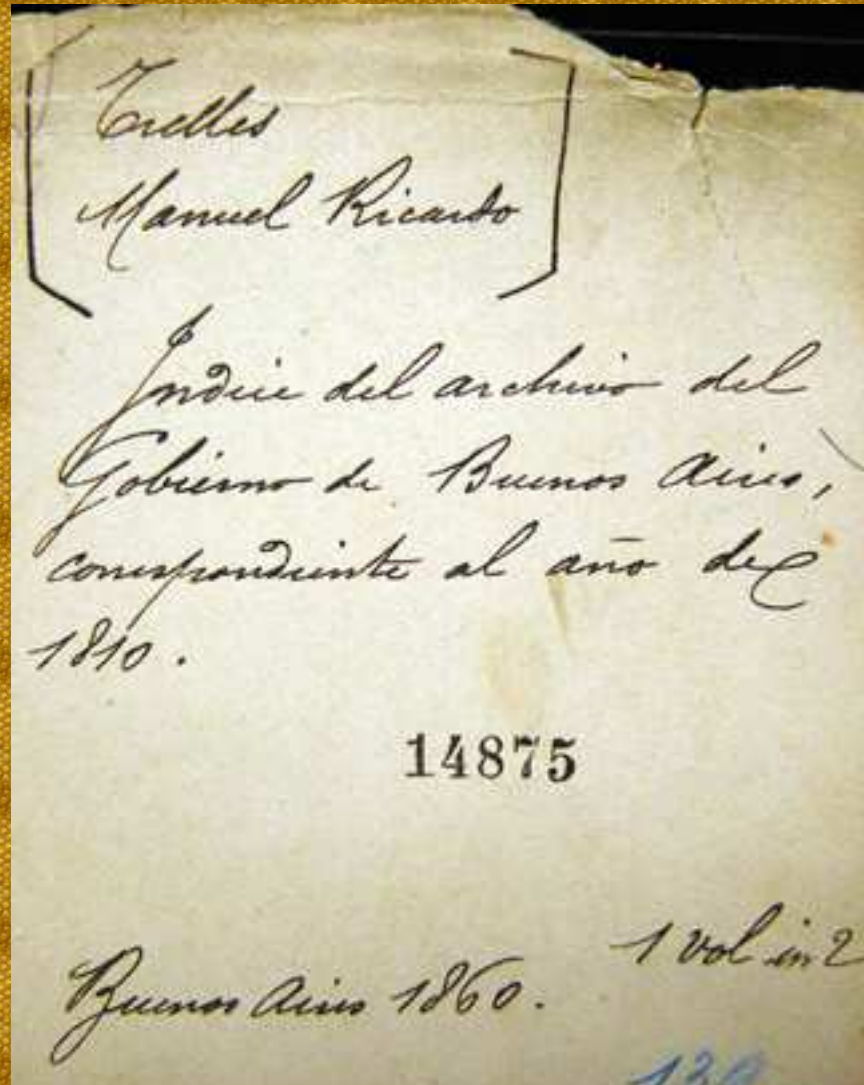 [Trelles
Manuel Ricardo]
Indice del archivo del
Gobierno de Buenos Aires,
correspondiente al año de
1810.
14875
1 vol in 2
Buenos Aires 1860.